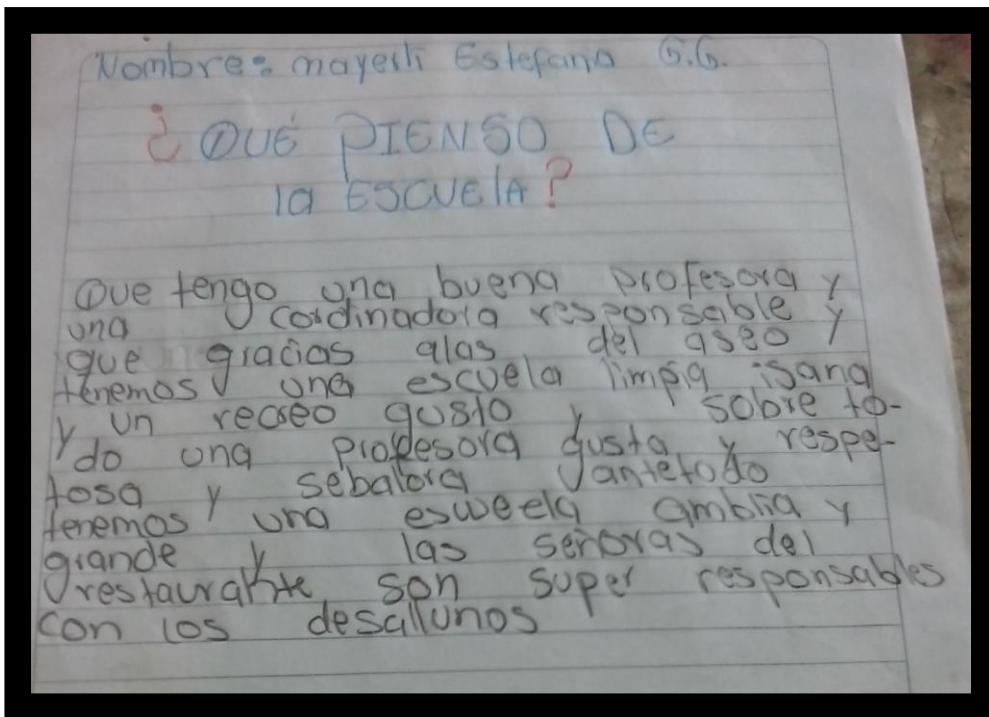 Nombre: mayerli Estefana G.G.
¿QUÉ PIENSO DE
la ESCUElA?
Que tengo una buena profesora y
una cordinadora responsable y
que gracias alas del aseo y
tenemos una escuela limpia isana
y un recseo gusto y sobre to-
do una profesora gusta y respe-
tosa y sebalora antetodo
tenemos una esweela amblia y
grande y las señoras del
restaurante son super responsables
con los desallunos